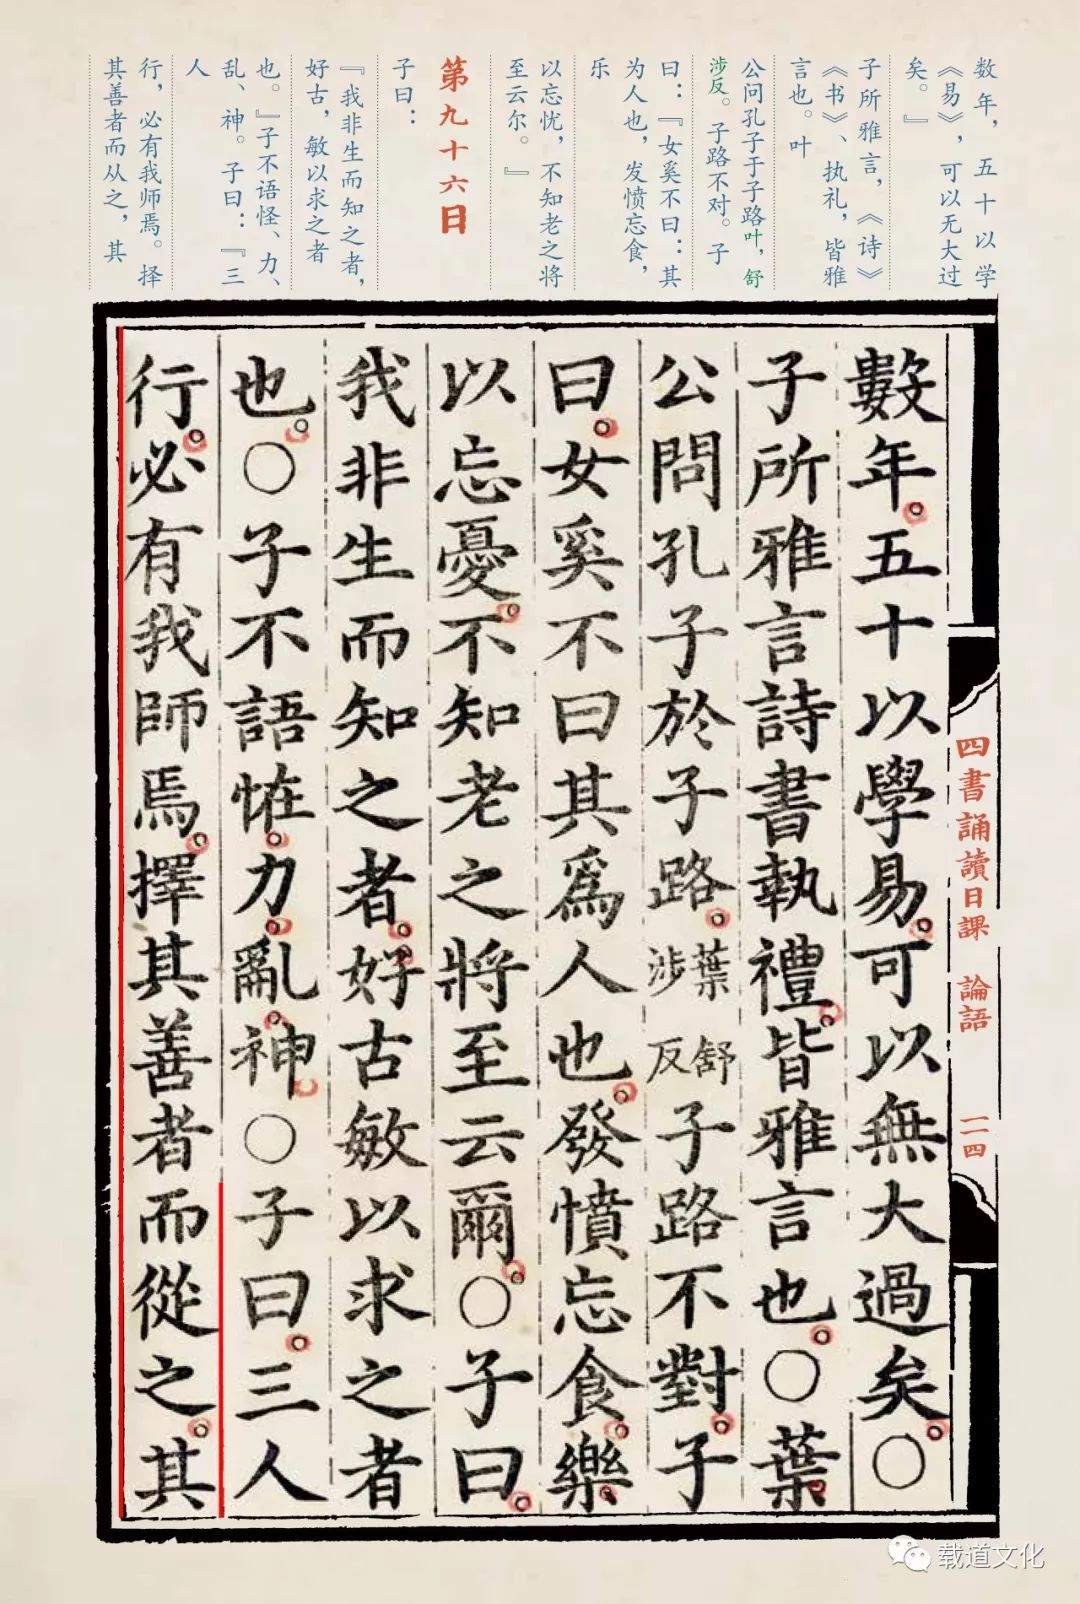 数年，五十以学
《易》，可以无大过
矣。』
子所雅言，《诗》
《书》、执礼，皆雅
言也。叶
公问孔子于子路叶，舒
涉反。子路不对。子
曰：『女奚不曰：其
为人也，发愤忘食，
乐
以忘忧，不知老之将
至云尔。』
第九十六日
子曰：
『我非生而知之者，
好古，敏以求之者
也。』子不语怪、力、
乱、神。子曰：『三
人
行，必有我师焉。择
其善者而从之，其
數年。五十以學易。可以無大過矣。○
子所雅言詩書執禮。皆雅言也。○葉
公問孔子於子路。葉舒涉反子路不對。子
曰。女奚不曰其爲人也。發憤忘食。樂
以忘憂。不知老之將至云爾。○子曰。
我非生而知之者。好古敏以求之者
也。○子不語恠。力。亂。神。○子曰。三人
行。必有我師焉。擇其善者而從之。其
四書誦讀日課 論語 一一四
载道文化